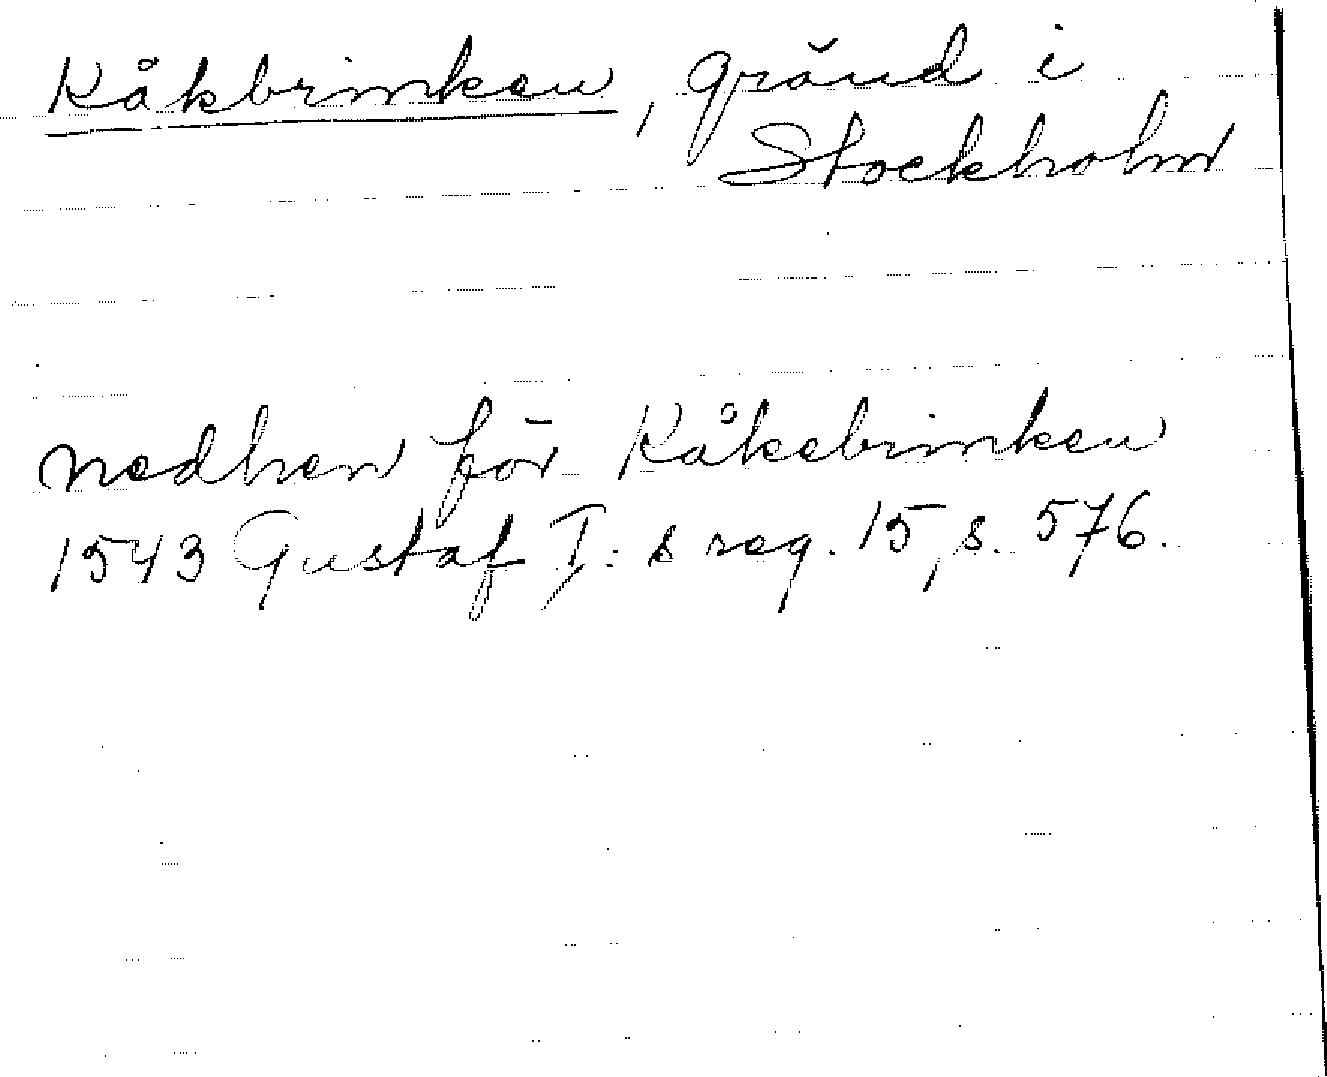 Kåkbrinken, gränd i
Stockholm
nedhen för Kåkebrinken
1543 Gustaf I:s reg. 15, s. 576.